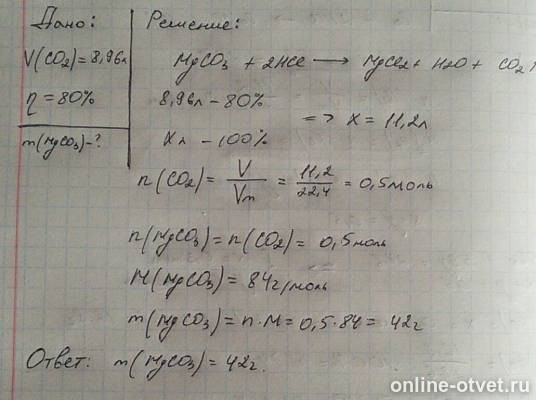 Дано:
V(CO2)=8,96л
η=80%
m(MgCO3)-?
Решение:
MgCO3 + 2HCl ⟶ MgCl2+ H2O + CO2↑
8,96л - 80%
Xл - 100%
=> X = 11,2л
n(CO2)= V/Vm = 11,2/22,4 = 0,5моль
n(MgCO3)=n(CO2)= 0,5моль
M(MgCO3)=84г/моль
m(MgCO3)=n·M=0,5·84= 42г
Ответ: m(MgCO3)=42г.
online-otvet.ru